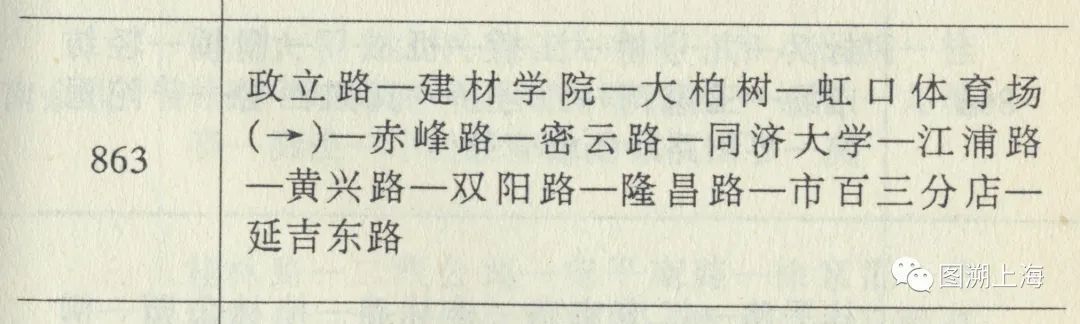 863
政立路—建材学院—大柏树—虹口体育场
(→)—赤峰路—密云路—同济大学—江浦路
—黄兴路—双阳路—隆昌路—市百三分店—
延吉东路
图溯上海